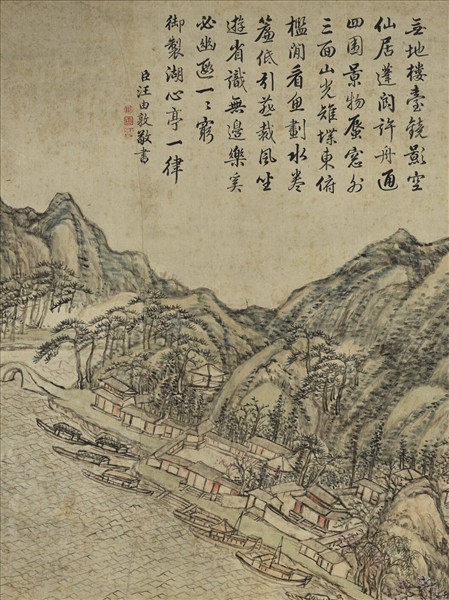 无地樓臺鏡影空
仙居蓬閬許舟通
四圍景物蜃窓外
三面山光雉堞東俯
檻閒看魚劃水卷
簾低引燕裁風坐
遊省識無邊樂奚
必幽遐一〻窮
御製湖心亭一律
臣汪由敦敬書